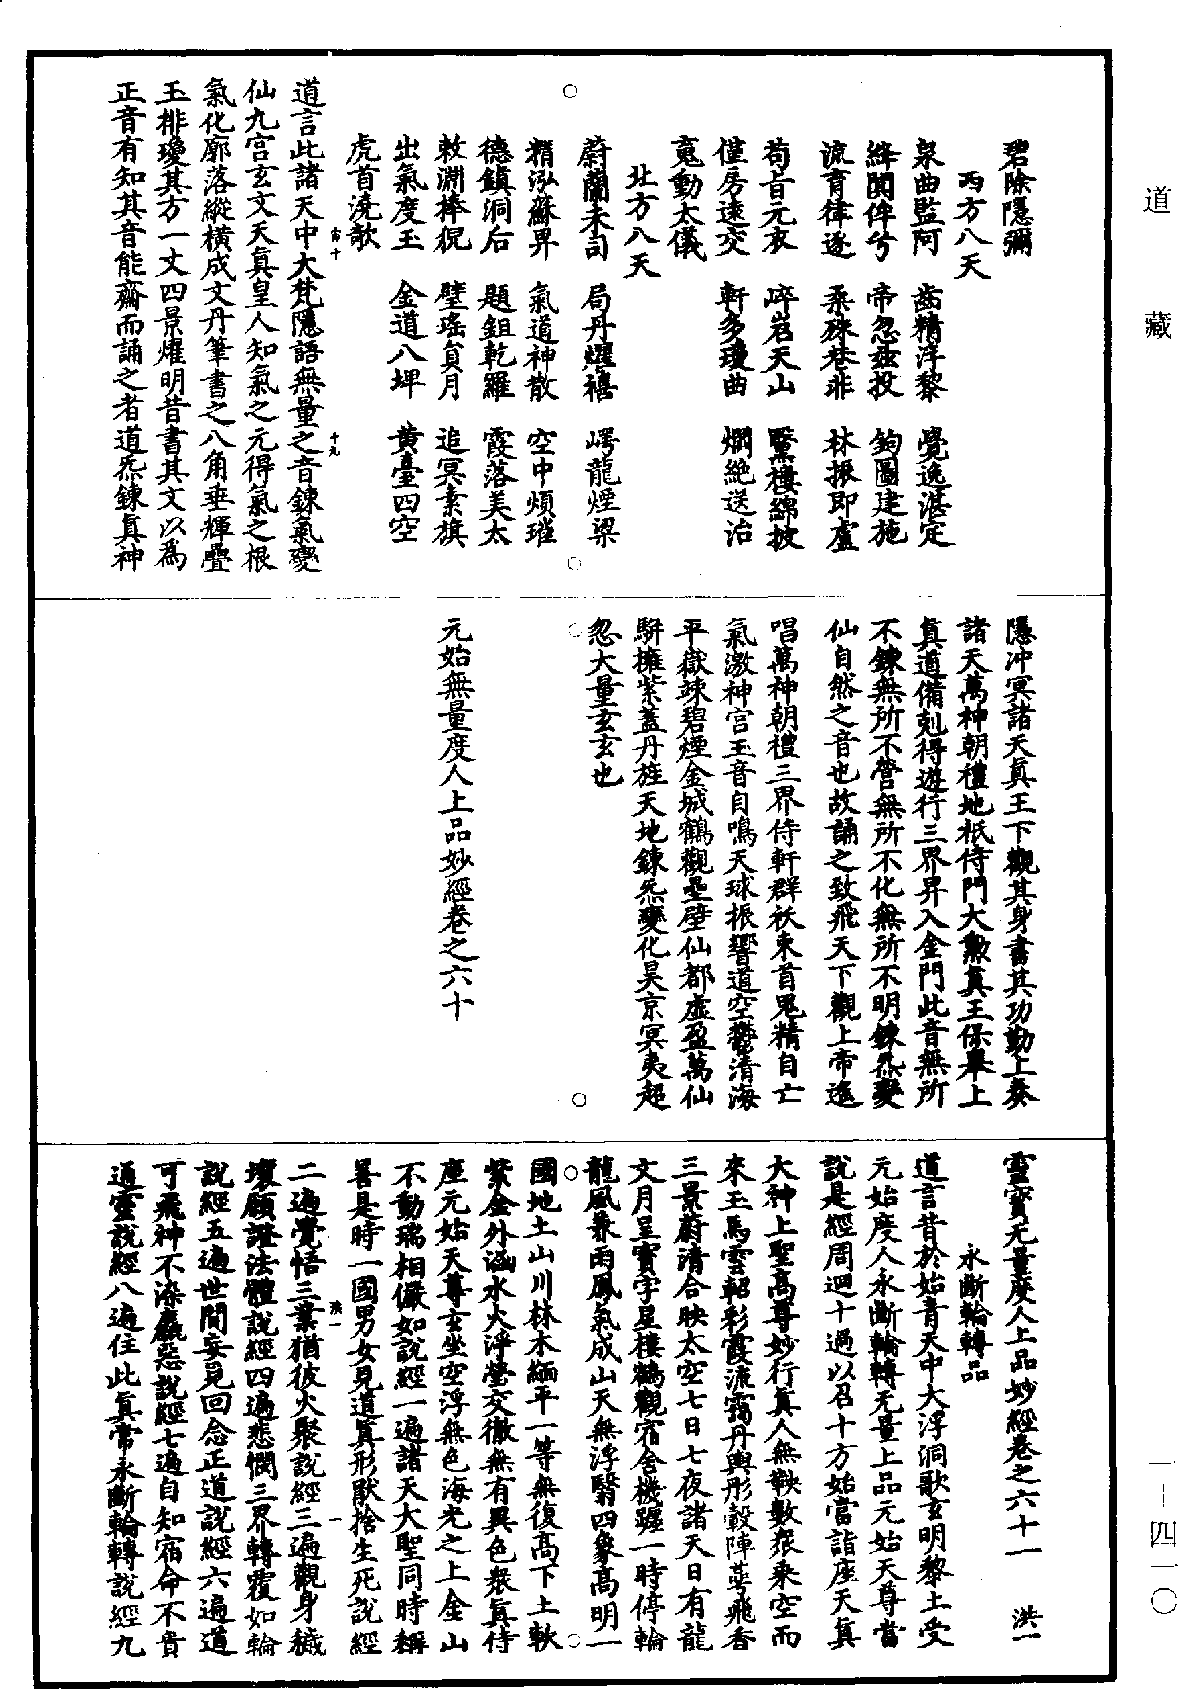 道藏
碧除隱彌
西方八天
泉曲監阿　齒精淳黎　覺逸湛定
絳閡俾兮　帝忽茲投　鉤圖建施
流育律逐　桑殊巷非　林振即盧
荀旨元衣　崪岩天山　黶樓綿披
催房遠交　軒多瓊曲　爛絶送治
䨲動太儀
北方八天
蔚蘭未司　局丹耀禧　崿龍煙梁
精泓蘇昇　氣道神散　空中煩璀
德鎮洞后　題鉏乾羅　霞落美太
敕淵棒猊　壁瑤負月　追冥素旗
出氣度玉　金道八坪　黃臺四空
虎首澆歊
道言此諸天中大梵隱語無量之音鍊氣變
仙九宮玄文天真皇人知氣之元得氣之根
氣化廓落縱橫成文丹筆書之八角垂輝疊
玉排瓊其方一丈四景燿明昔書其文以爲
正音有知其音能齋而誦之者道炁鍊真神
隱冲冥諸天真王下觀其身書其功勤上奏
諸天萬神朝禮地祇侍門大勳真王保舉上
真道備剋得遊行三界昇入金門此音無所
不鍊無所不管無所不化無所不明鍊炁變
仙自然之音也故誦之致飛天下觀上帝遙
唱萬神朝禮三界侍軒群祅束首鬼精自亡
氣激神宮玉音自鳴天球振響道空鬱清海
平嶽竦碧煙金城鶴觀壘壁仙都虛盈萬仙
駢擁紫蓋丹旌天地鍊炁變化昊京冥夷超
忽大量玄玄也
元始無量度人上品妙經卷之六十
靈寶无量度人上品妙經卷之六十一　洪一
永斷輪轉品
道言昔於始青天中大浮洞歌玄明黎土受
元始度人永斷輪轉无量上品元始天尊當
說是經周迴十過以召十方始當詣座天真
大神上聖高尊妙行真人無鞅數衆乘空而
來玉馬雲軺彩霞流靄丹輿彤轂陣葶飛香
三景蔚清合映太空七日七夜諸天日有龍
文月呈寶字星樓鶴觀宿舍機躔一時停輪
龍風乘雨鳳氣成山天無浮翳四象高明一
國地土山川林木緬平一等無復高下上軟
紫金外涵水火淨瑩交徹無有異色衆真侍
座元始天尊玄坐空浮無色海光之上金山
不動瑞相儼如說經一遍諸天大聖同時稱
善是時一國男女見道真形獸捨生死說經
二遍覺悟三業猶彼火聚說經三遍觀身穢
壞願證法體說經四遍悲憫三界轉覆如輪
說經五遍世間妄見回念正道說經六遍道
可飛神不染羸惡說經七遍自知宿命不貴
通靈說經八遍住此真常永斷輪轉說經九
一—四一〇